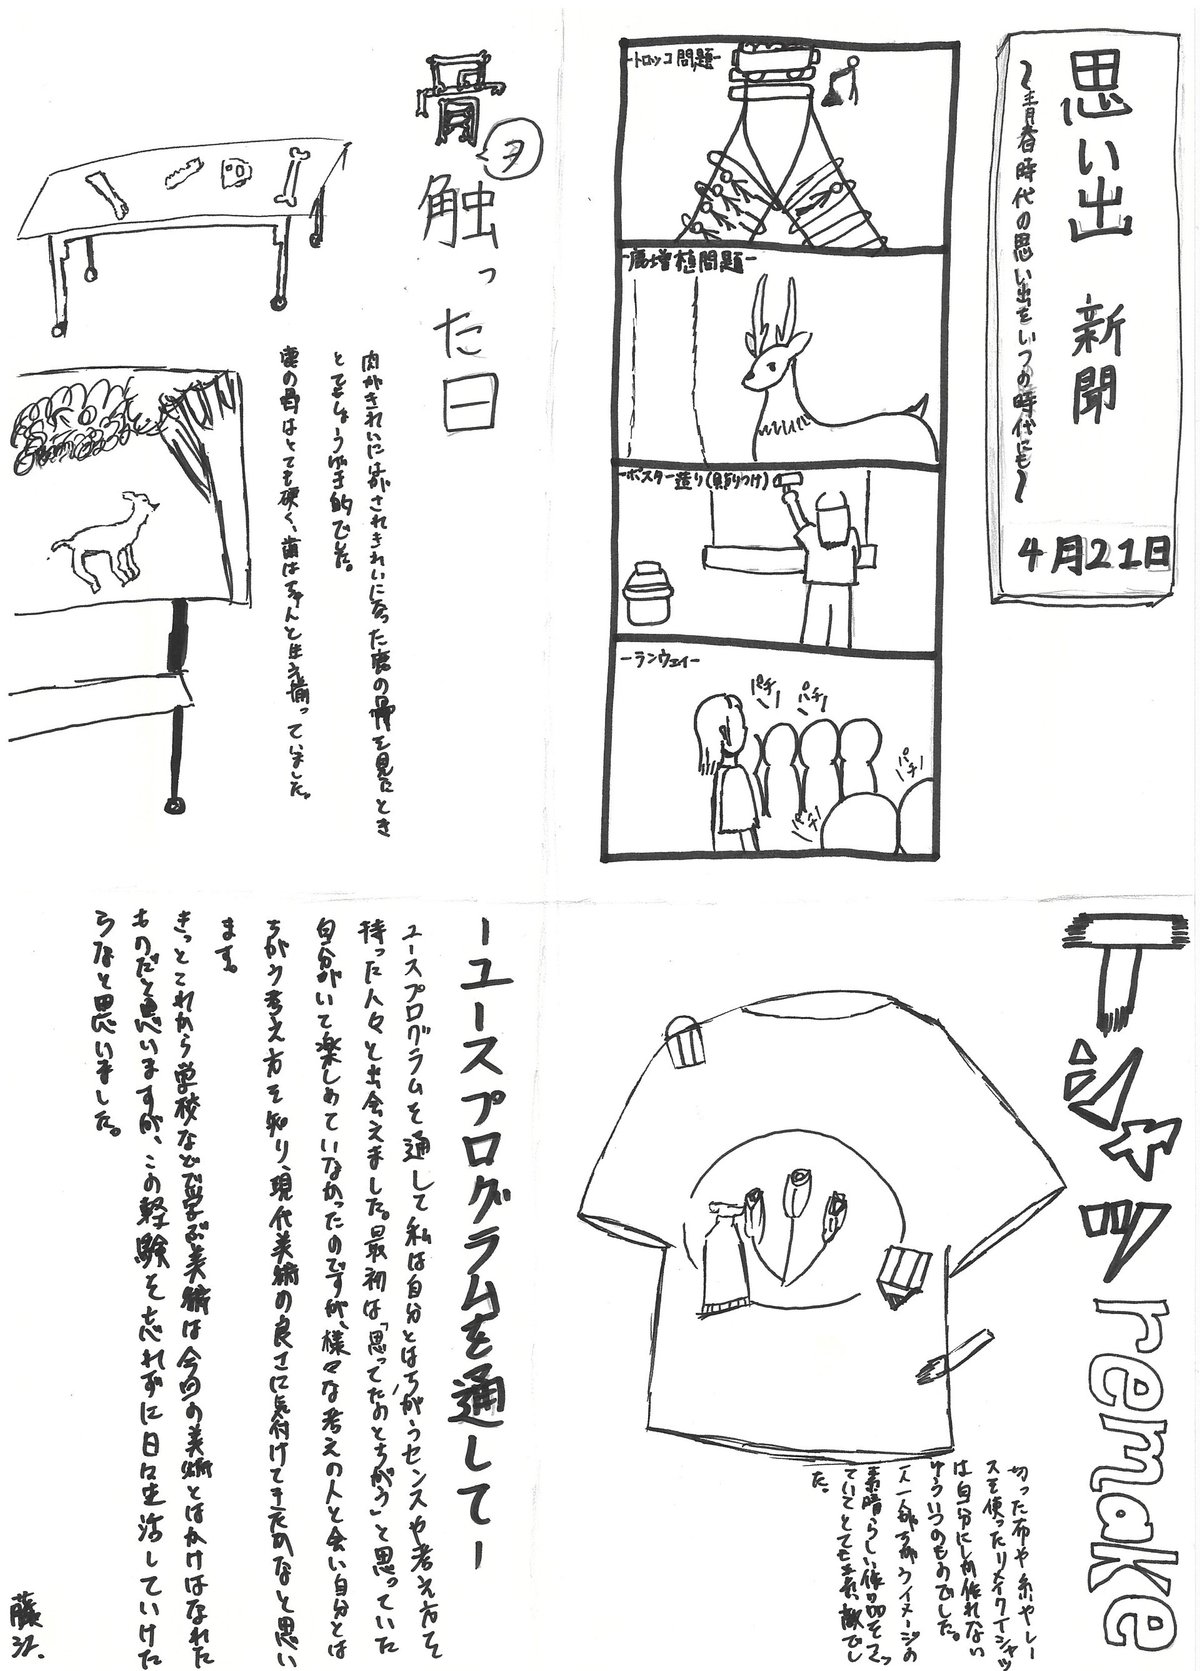 思い出 新聞
〜青春時代の思い出をいつの時代にも〜
4月21日
-トロッコ問題-
-鹿増植問題-
-ポスター造り(貼りつけ)
-ランウェイ-
パチ
パチ
パチ
パチ
骨ヲ触った日
肉がきれいにはがされきれいになった鹿の骨を見たとき
とてもしょうげき的でした。
鹿の骨はとても硬く、歯はちゃんと生え揃っていました。
Tーシャツ remake
切った布や糸やレー
スを使ったリメイクTシャツ
は自分にしか作れない
ゆういつのものでした。
一人一人の イメージの
素晴らしい作品をつくっ
ていてとても素敵でし
た。
-ユースプログラムを通して-
ユースプログラムを通して私は自分とはちがうセンスや考え方を
持った人々と出会えました。最初は「思ってたのとちがう」と思っていた
自分がいて楽しめていなかったのですが、様々な考えの人と会い自分とは
ちがう考え方を知り、現代美術の良さに気付けてきたかなと思い
ます。
きっとこれから学校などで学ぶ美術は今回の美術とはかけはなれた
ものだと思いますが、この経験を忘れずに日々生活していけた
らなと思いました。
藤江.